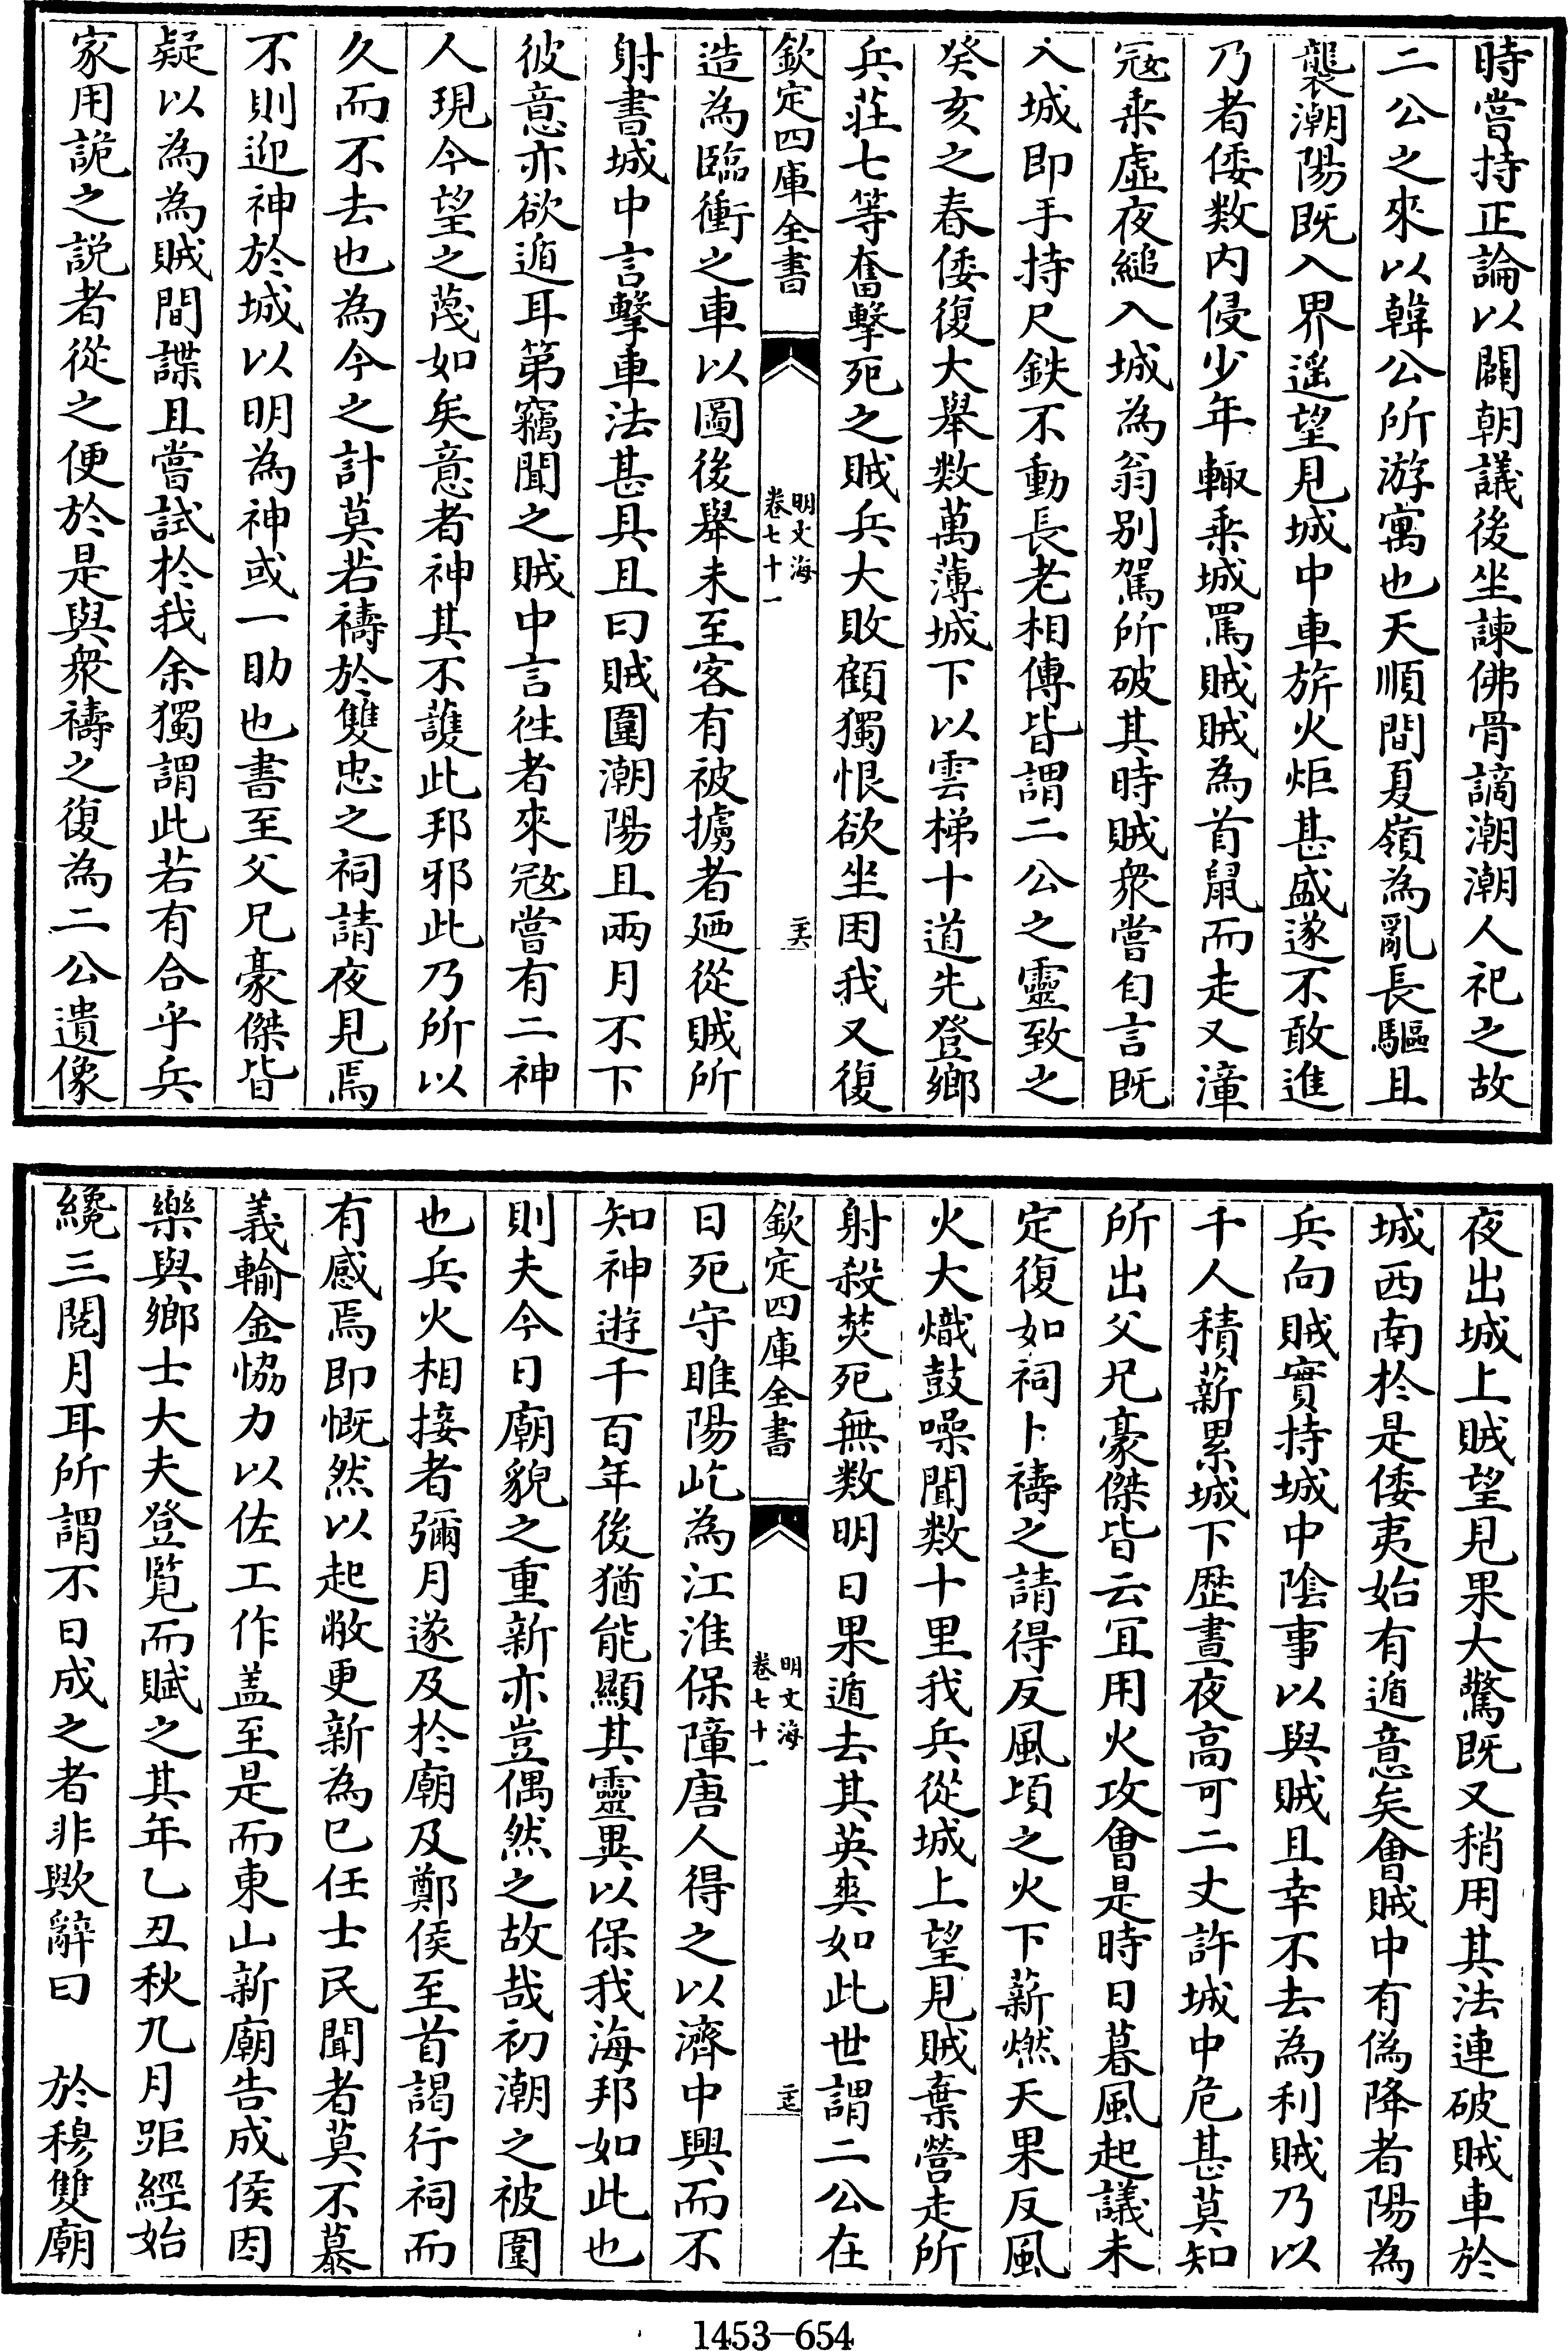 時嘗持正論以闢朝議後坐諫佛骨謫潮潮人祀之故
二公之來以韓公所游寓也天順間夏嶺為亂長驅且
襲潮陽既入界遥望見城中車旂火炬甚盛遂不敢進
乃者倭数内侵少年輙乗城罵賊賊為首鼠而走又漳
冦乗虛夜縋入城為翁别駕所破其時賊衆嘗自言既
入城即手持尺鉄不動長老相傳皆謂二公之靈致之
癸亥之春倭復大舉数萬薄城下以雲梯十道先登鄉
兵莊七等奮擊死之賊兵大敗顧獨恨欲坐困我又復
欽定四庫全書
明文海
卷七十一
二六
造為臨衝之車以圖後舉未至客有被擄者廼從賊所
射書城中言擊車法甚具且曰賊圍潮陽且兩月不下
彼意亦欲遁耳第竊聞之賊中言徃者來冦嘗有二神
人現今望之蔑如矣意者神其不護此邦邪此乃所以
久而不去也為今之計莫若禱於雙忠之祠請夜見焉
不則迎神於城以明為神或一助也書至父兄豪傑皆
疑以為為賊間諜且嘗試於我余獨謂此若有合乎兵
家用詭之説者從之便於是與衆禱之復為二公遺像
夜出城上賊望見果大驚既又稍用其法連破賊車於
城西南於是倭夷始有遁意矣會賊中有偽降者陽為
兵向賊實持城中隂事以與賊且幸不去為利賊乃以
千人積薪累城下歴晝夜高可二丈許城中危甚莫知
所出父兄豪傑皆云宜用火攻會是時日暮風起議未
定復如祠卜禱之請得反風頃之火下薪燃天果反風
火大熾鼓噪聞数十里我兵從城上望見賊棄營走所
射殺焚死無数明日果遁去其英爽如此世謂二公在
欽定四庫全書
明文海
卷七十一
二七
日死守睢陽屹為江淮保障唐人得之以濟中興而不
知神遊千百年後猶能顯其靈異以保我海邦如此也
則夫今日廟貌之重新亦豈偶然之故哉初潮之被圍
也兵火相接者彌月遂及於廟及鄭侯至首謁行祠而
有感焉即慨然以起敝更新為已任士民聞者莫不慕
義輸金恊力以佐工作盖至是而東山新廟告成侯因
樂與鄉士大夫登覧而賦之其年乙丑秋九月距經始
纔三閲月耳所謂不日成之者非歟辭曰　於穆雙廟
1453—654